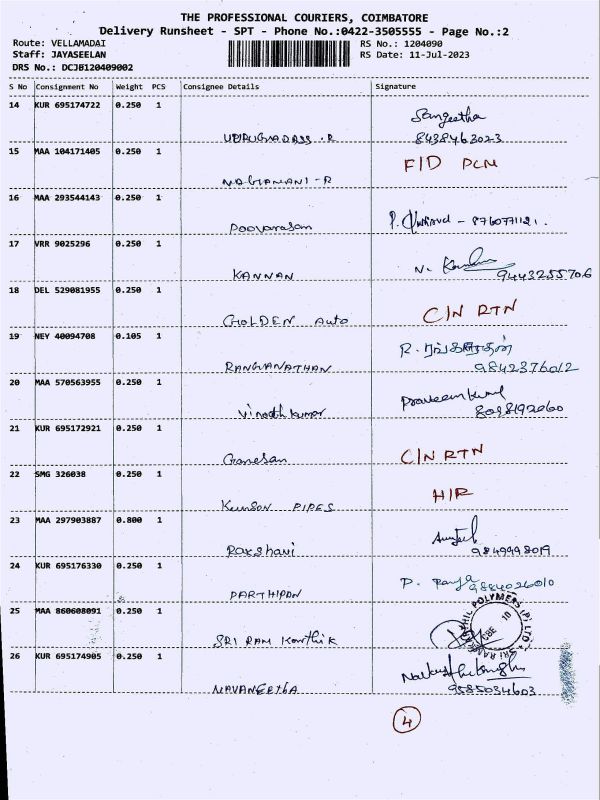 THE PROFESSIONAL COURIERS, COIMBATORE
Delivery Runsheet - SPT - Phone No.:0422-3505555 - Page No.:2
Route: VELLAMADAI RS No.: 1204090
Staff: JAYASEELAN RS Date: 11-Jul-2023
DRS No.: DCJB120409002
S No Consignment No Weight PCS Consignee Details Signature
14 KUR 695174722 0.250 1 Sangeetha
8438463023
15 MAA 104171405 0.250 1 F/D PCM
NAGAMANI-R
16 MAA 293544143 0.250 1
Poovarasan - 8760771121.
17 VRR 9025296 0.250 1
KANNAN 9443255706
18 DEL 529081955 0.250 1 C/N RTN
GOLDEN Auto
19 NEY 40094708 0.105 1 R. ரங்கநாதன்
RANGANATHAN 9842376012
20 MAA 570563955 0.250 1 Praveen Kumar
Vinoth kumar 8098192060
21 KUR 695172921 0.250 1 C/N RTN
Ganesan
22 SMG 326038 0.250 1 H/R
PIPES
23 MAA 297903887 0.800 1
Rakshani 9849998019
24 KUR 695176330 0.250 1
PARTHIPAN 9884026010
25 MAA 860608091 0.250 1
SRI RAM Karthik
26 KUR 695174905 0.250 1
NAVANEETHA 9585034603
4